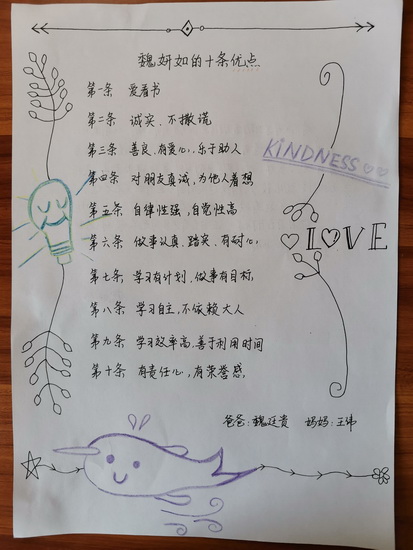 魏妍如的十条优点
第一条 爱看书
第二条 诚实、不撒谎
第三条 善良、有爱心,乐于助人
KINDNESS
第四条 对朋友真诚,为他人着想
第五条 自律性强,自觉性高
第六条 做事认真、踏实、有耐心,
LOVE
第七条 学习有计划、做事有目标,
第八条 学习自主,不依赖大人
第九条 学习效率高,善于利用时间
第十条 有责任心,有荣誉感,
爸爸:魏廷贵 妈妈:王伟